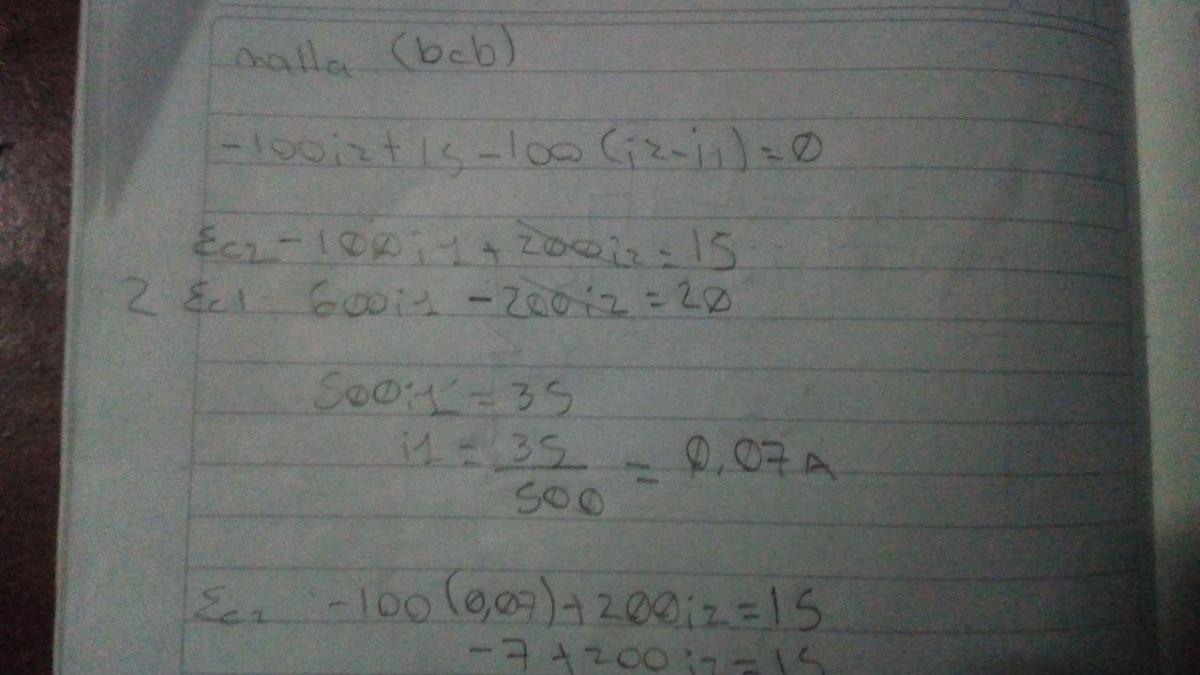 malla (bcb)
-100i2+15-100(i2-i1)=0
Ec2 -100i1+200i2=15
2 Ec1 600i1 -200i2=20
500i1=35
i1=35/500=0,07A
Ec2 -100(0,07)+200i2=15
-7+200i2=15